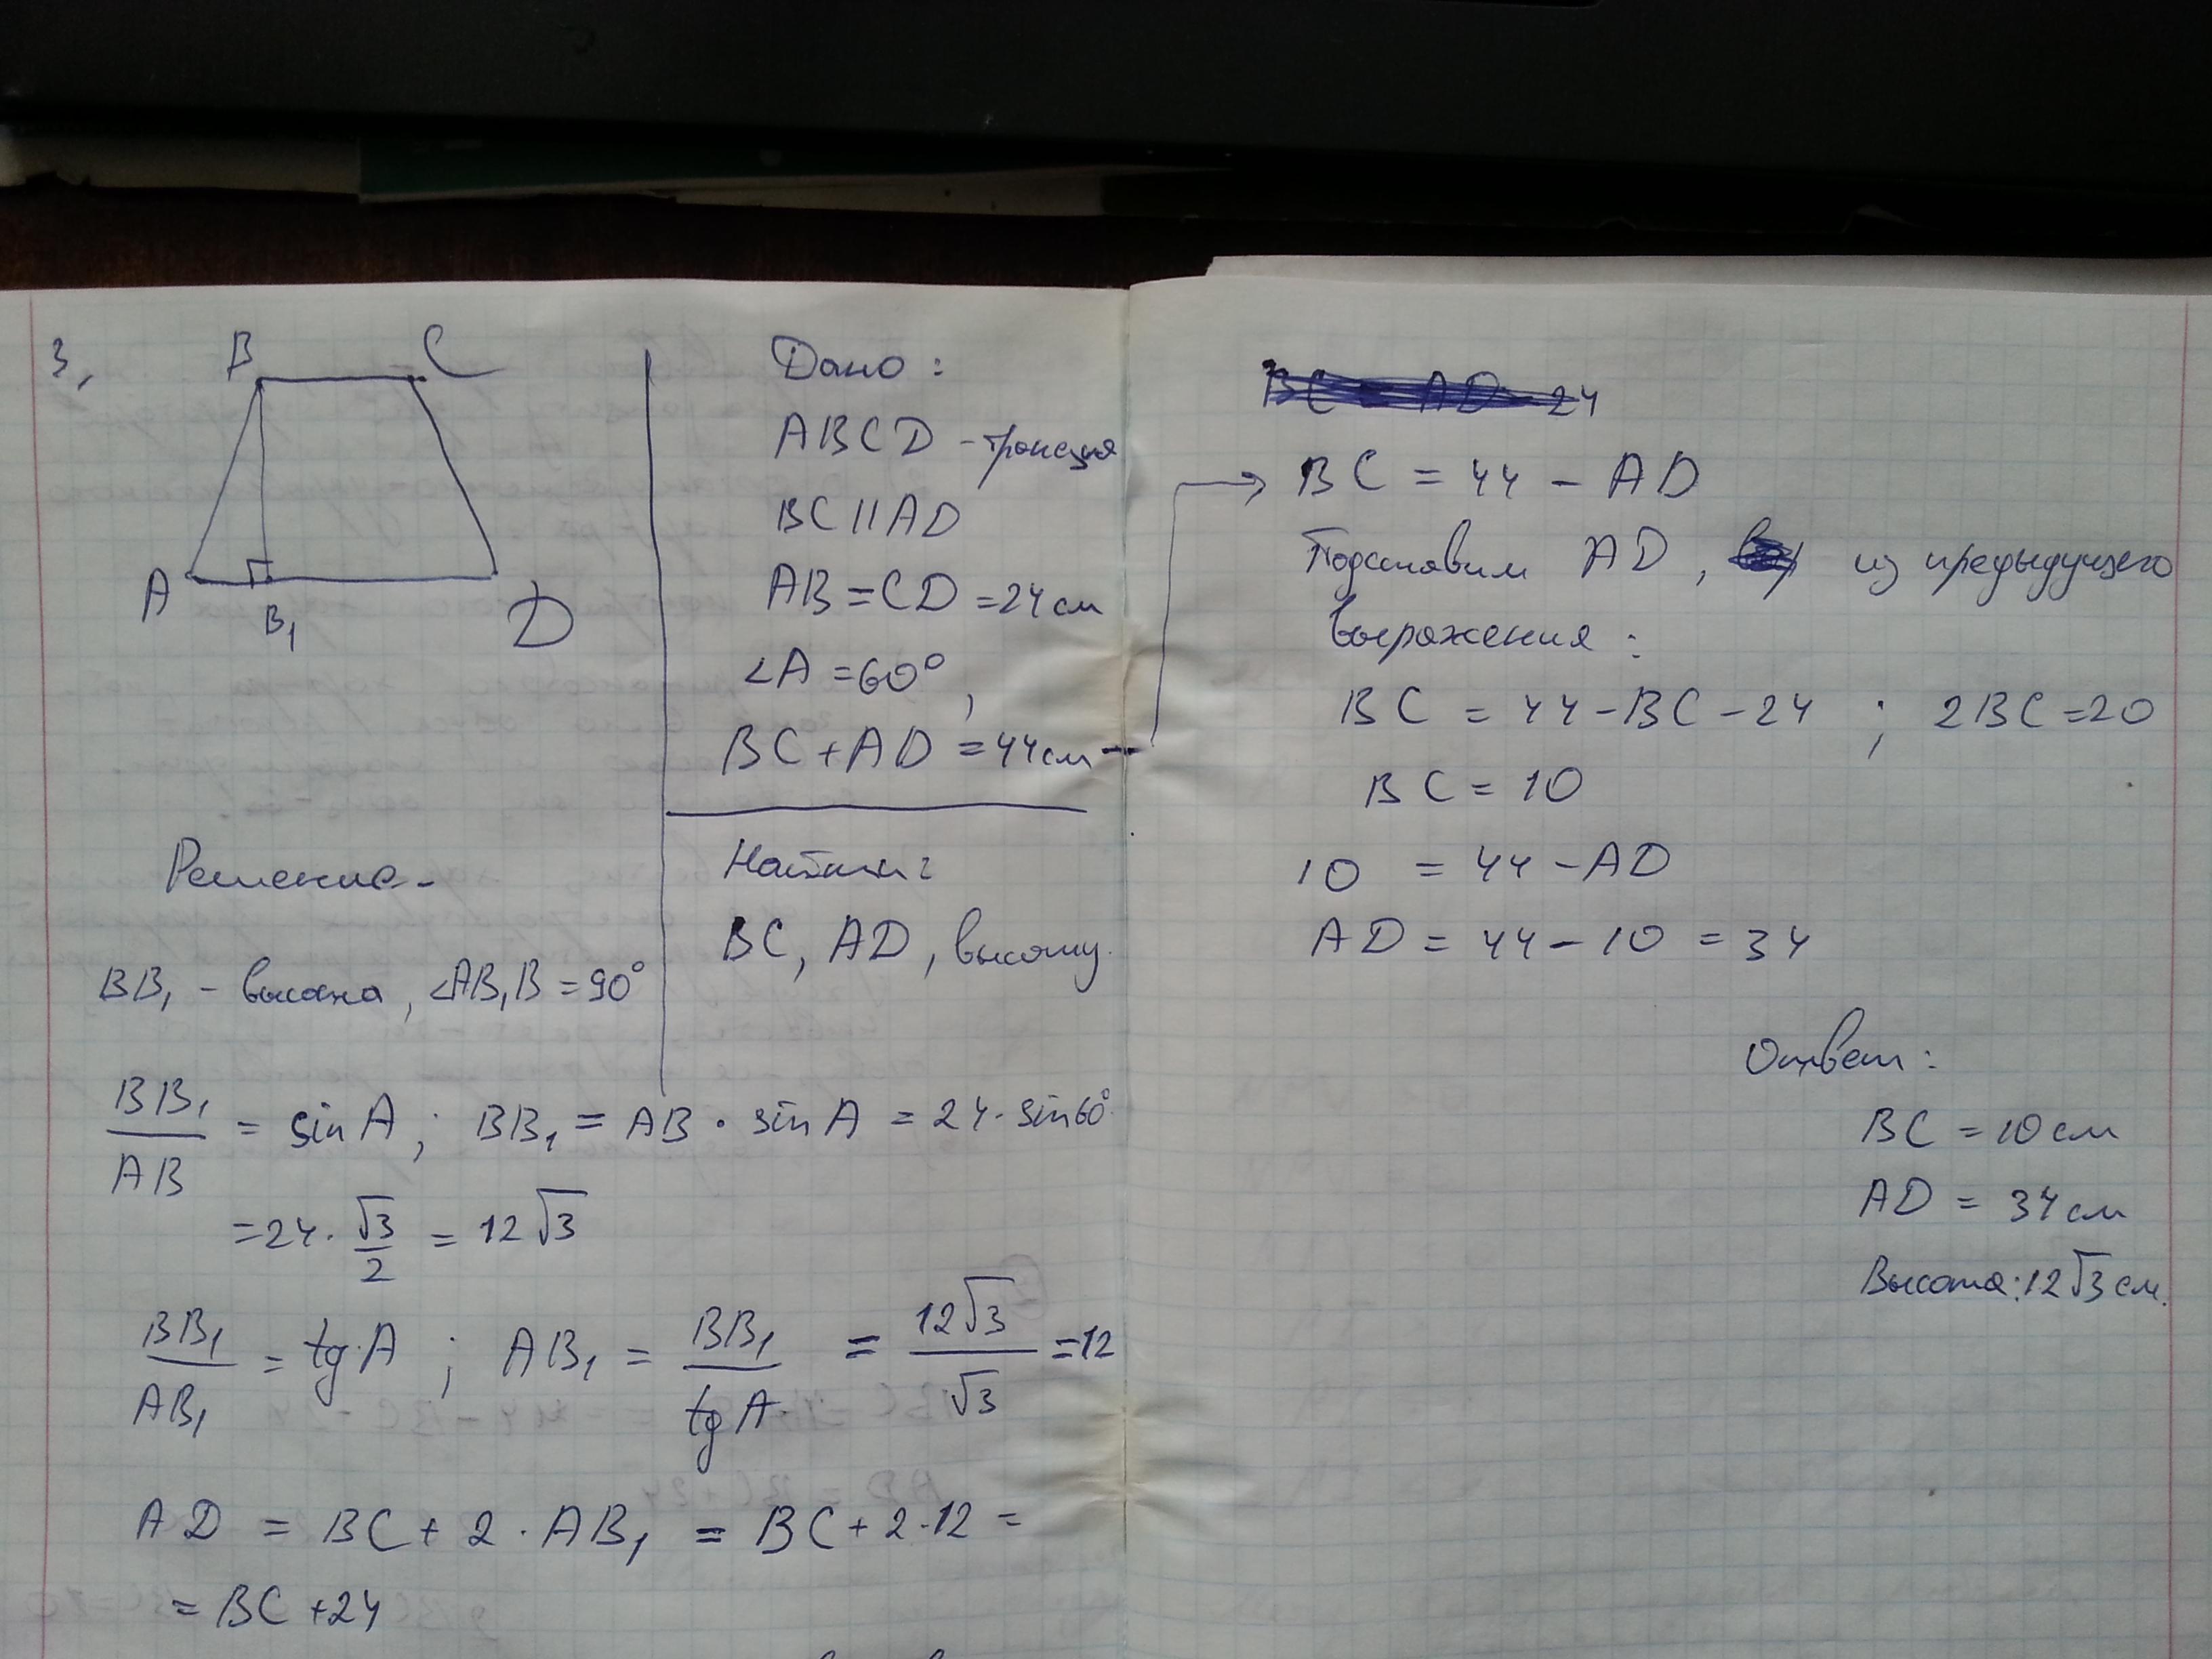 3,
B C
A B₁ D
Дано:
ABCD - трапеция
BC || AD
AB = CD = 24 см
∠A = 60°,
BC + AD = 44 см
Найти:
BC, AD, высоту.
Решение.
BB₁ - высота, ∠AB₁B = 90°
BB₁/AB = sin A ; BB₁ = AB · sin A = 24 · sin 60°
= 24 · √3/2 = 12√3
BB₁/AB₁ = tg A ; AB₁ = BB₁/tg A = 12√3/√3 = 12
AD = BC + 2 · AB₁ = BC + 2 · 12 =
= BC + 24
BC = AD - 24
BC = 44 - AD
Подставим AD, из предыдущего
выражения:
BC = 44 - BC - 24 ; 2BC = 20
BC = 10
10 = 44 - AD
AD = 44 - 10 = 34
Ответ:
BC = 10 см
AD = 34 см
Высота: 12√3 см.